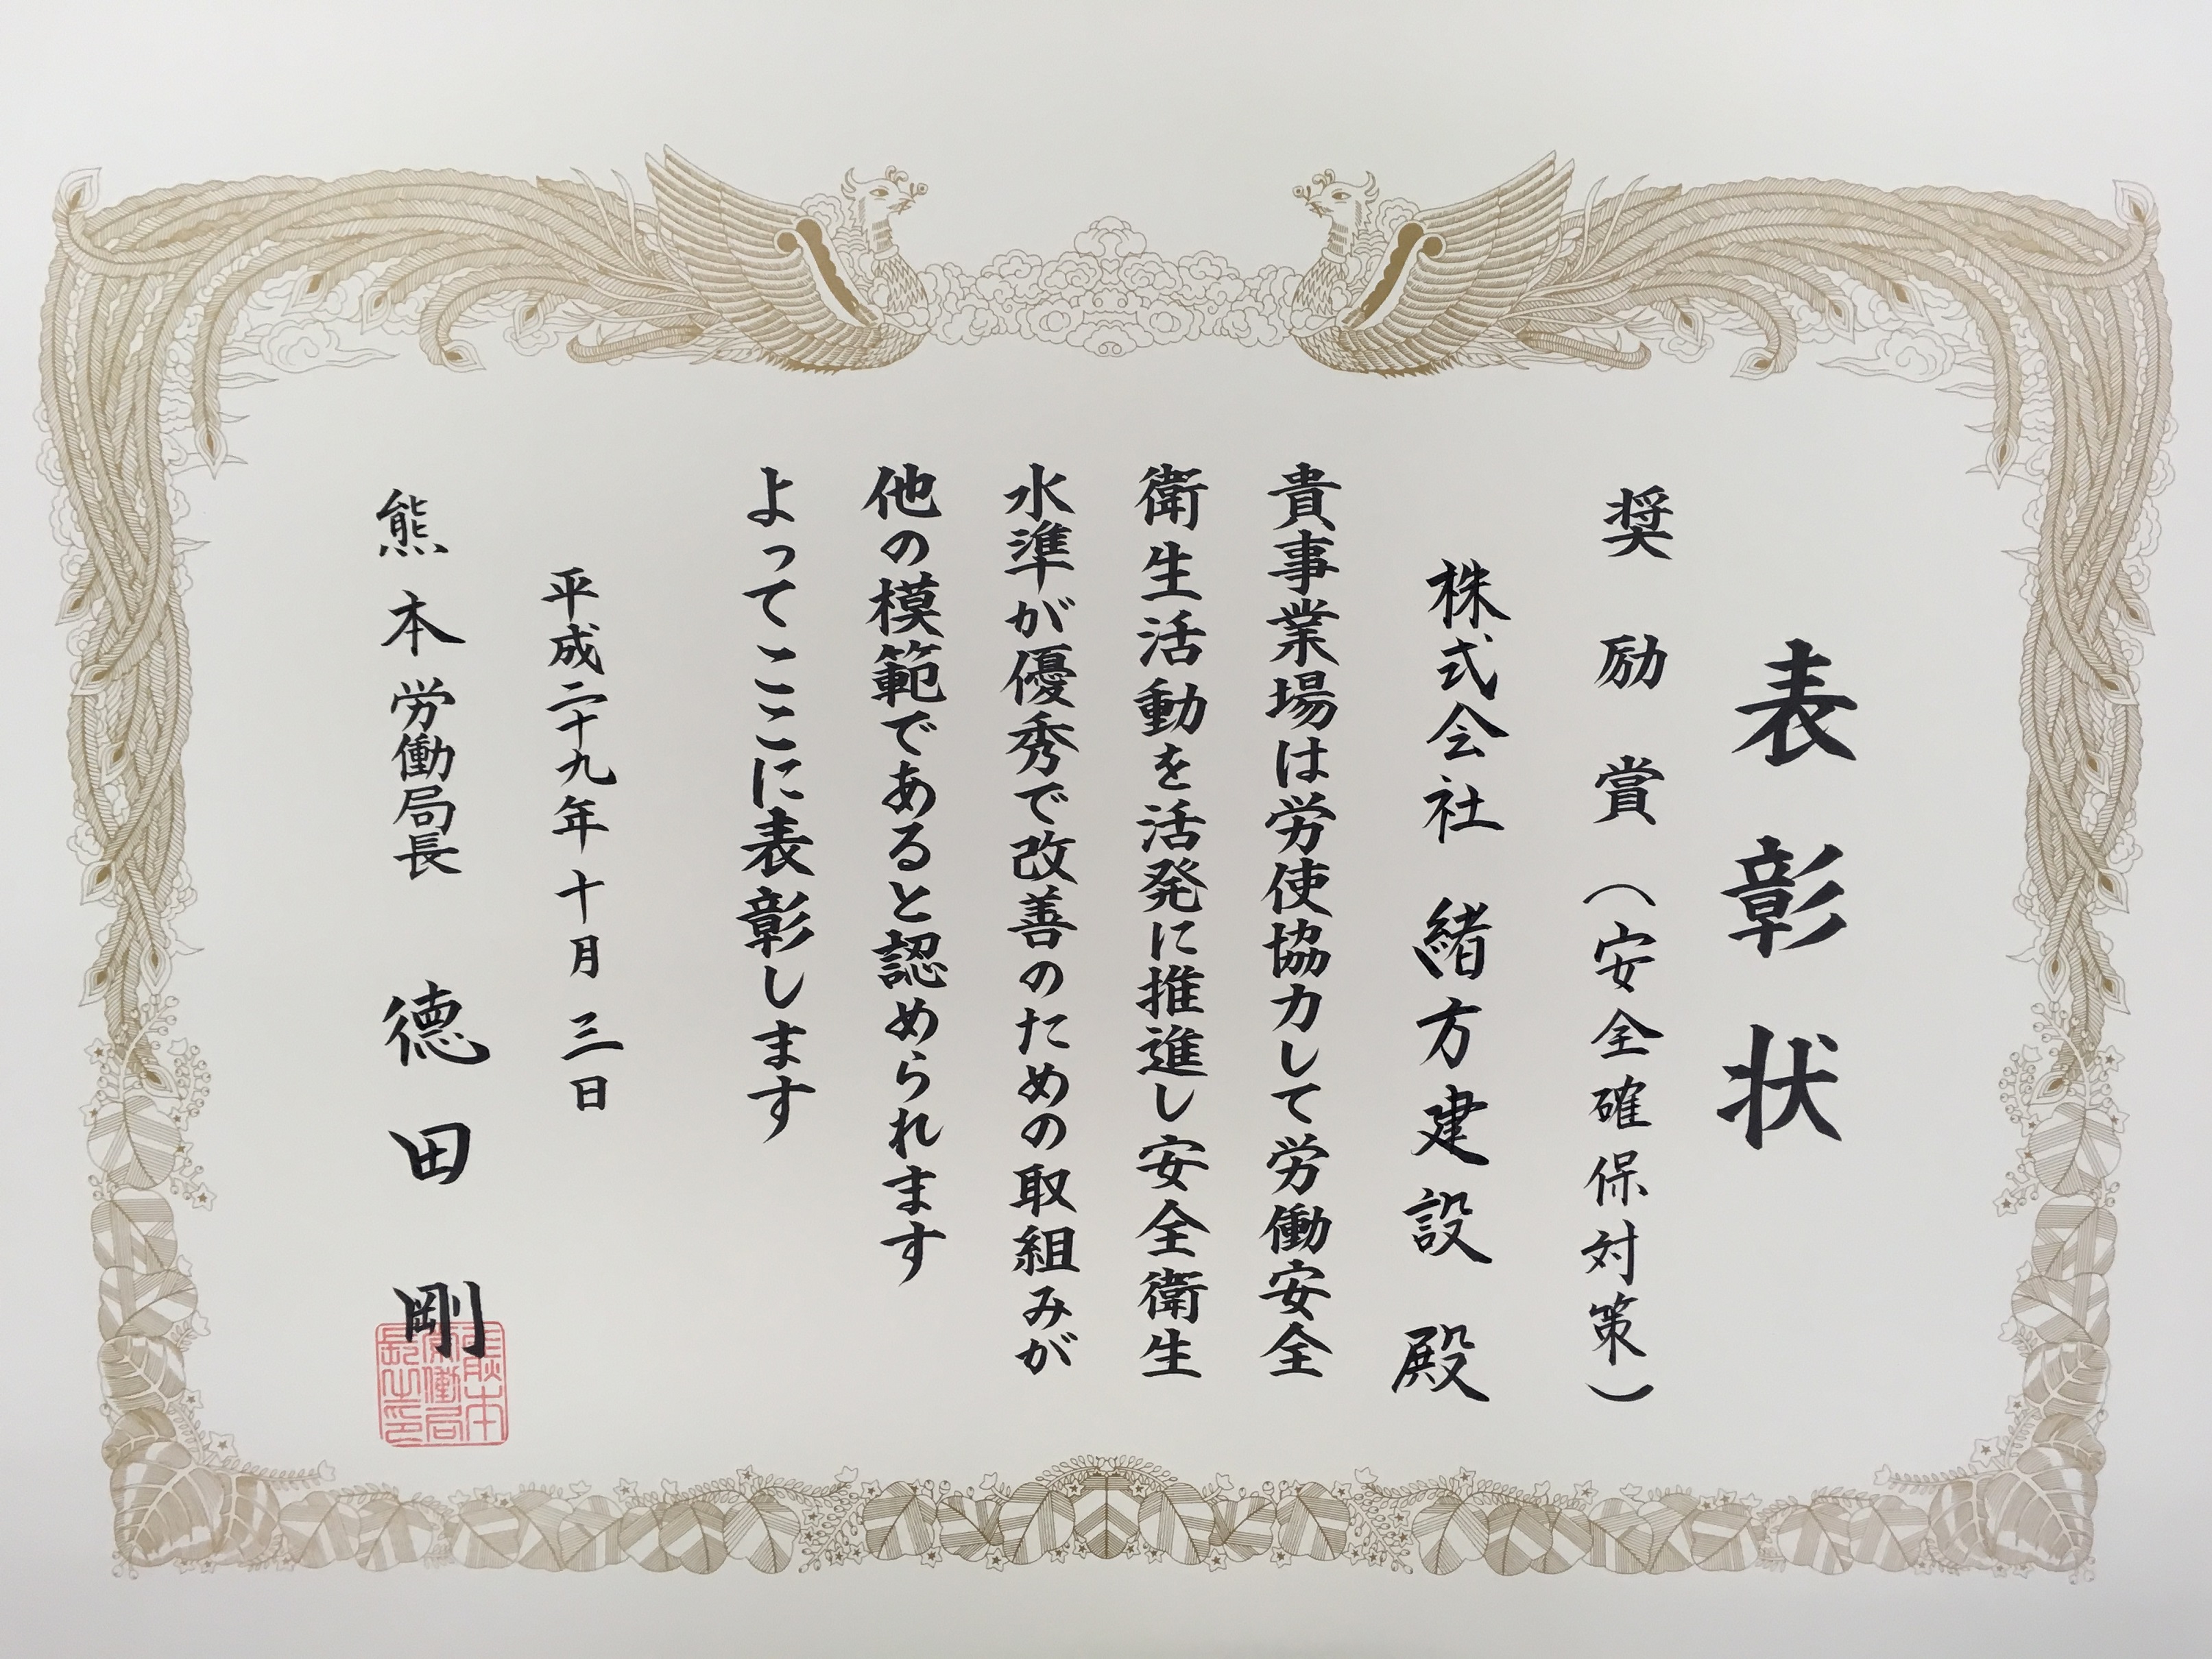 表彰状
奨励賞（安全確保対策）
株式会社 緒方建設 殿
貴事業場は労使協力して労働安全
衛生活動を活発に推進し安全衛生
水準が優秀で改善のための取組みが
他の模範であると認められます
よってここに表彰します
平成二十九年十月三日
熊本労働局長 徳田剛
熊本
労働局
長之印